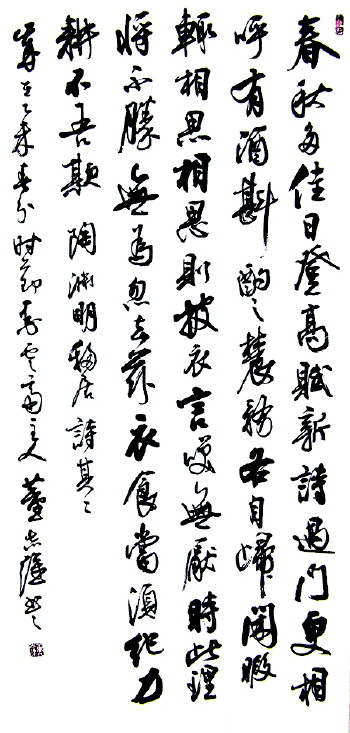 春秋多佳日登高賦新詩過門更相
呼有酒斟酌之農務各自歸閑暇
輒相思相思則披衣言笑無厭時此理
将不勝無為忽去茲衣食當須紀力
耕不吾欺 陶淵明移居詩其二
春分时節 主人 董志